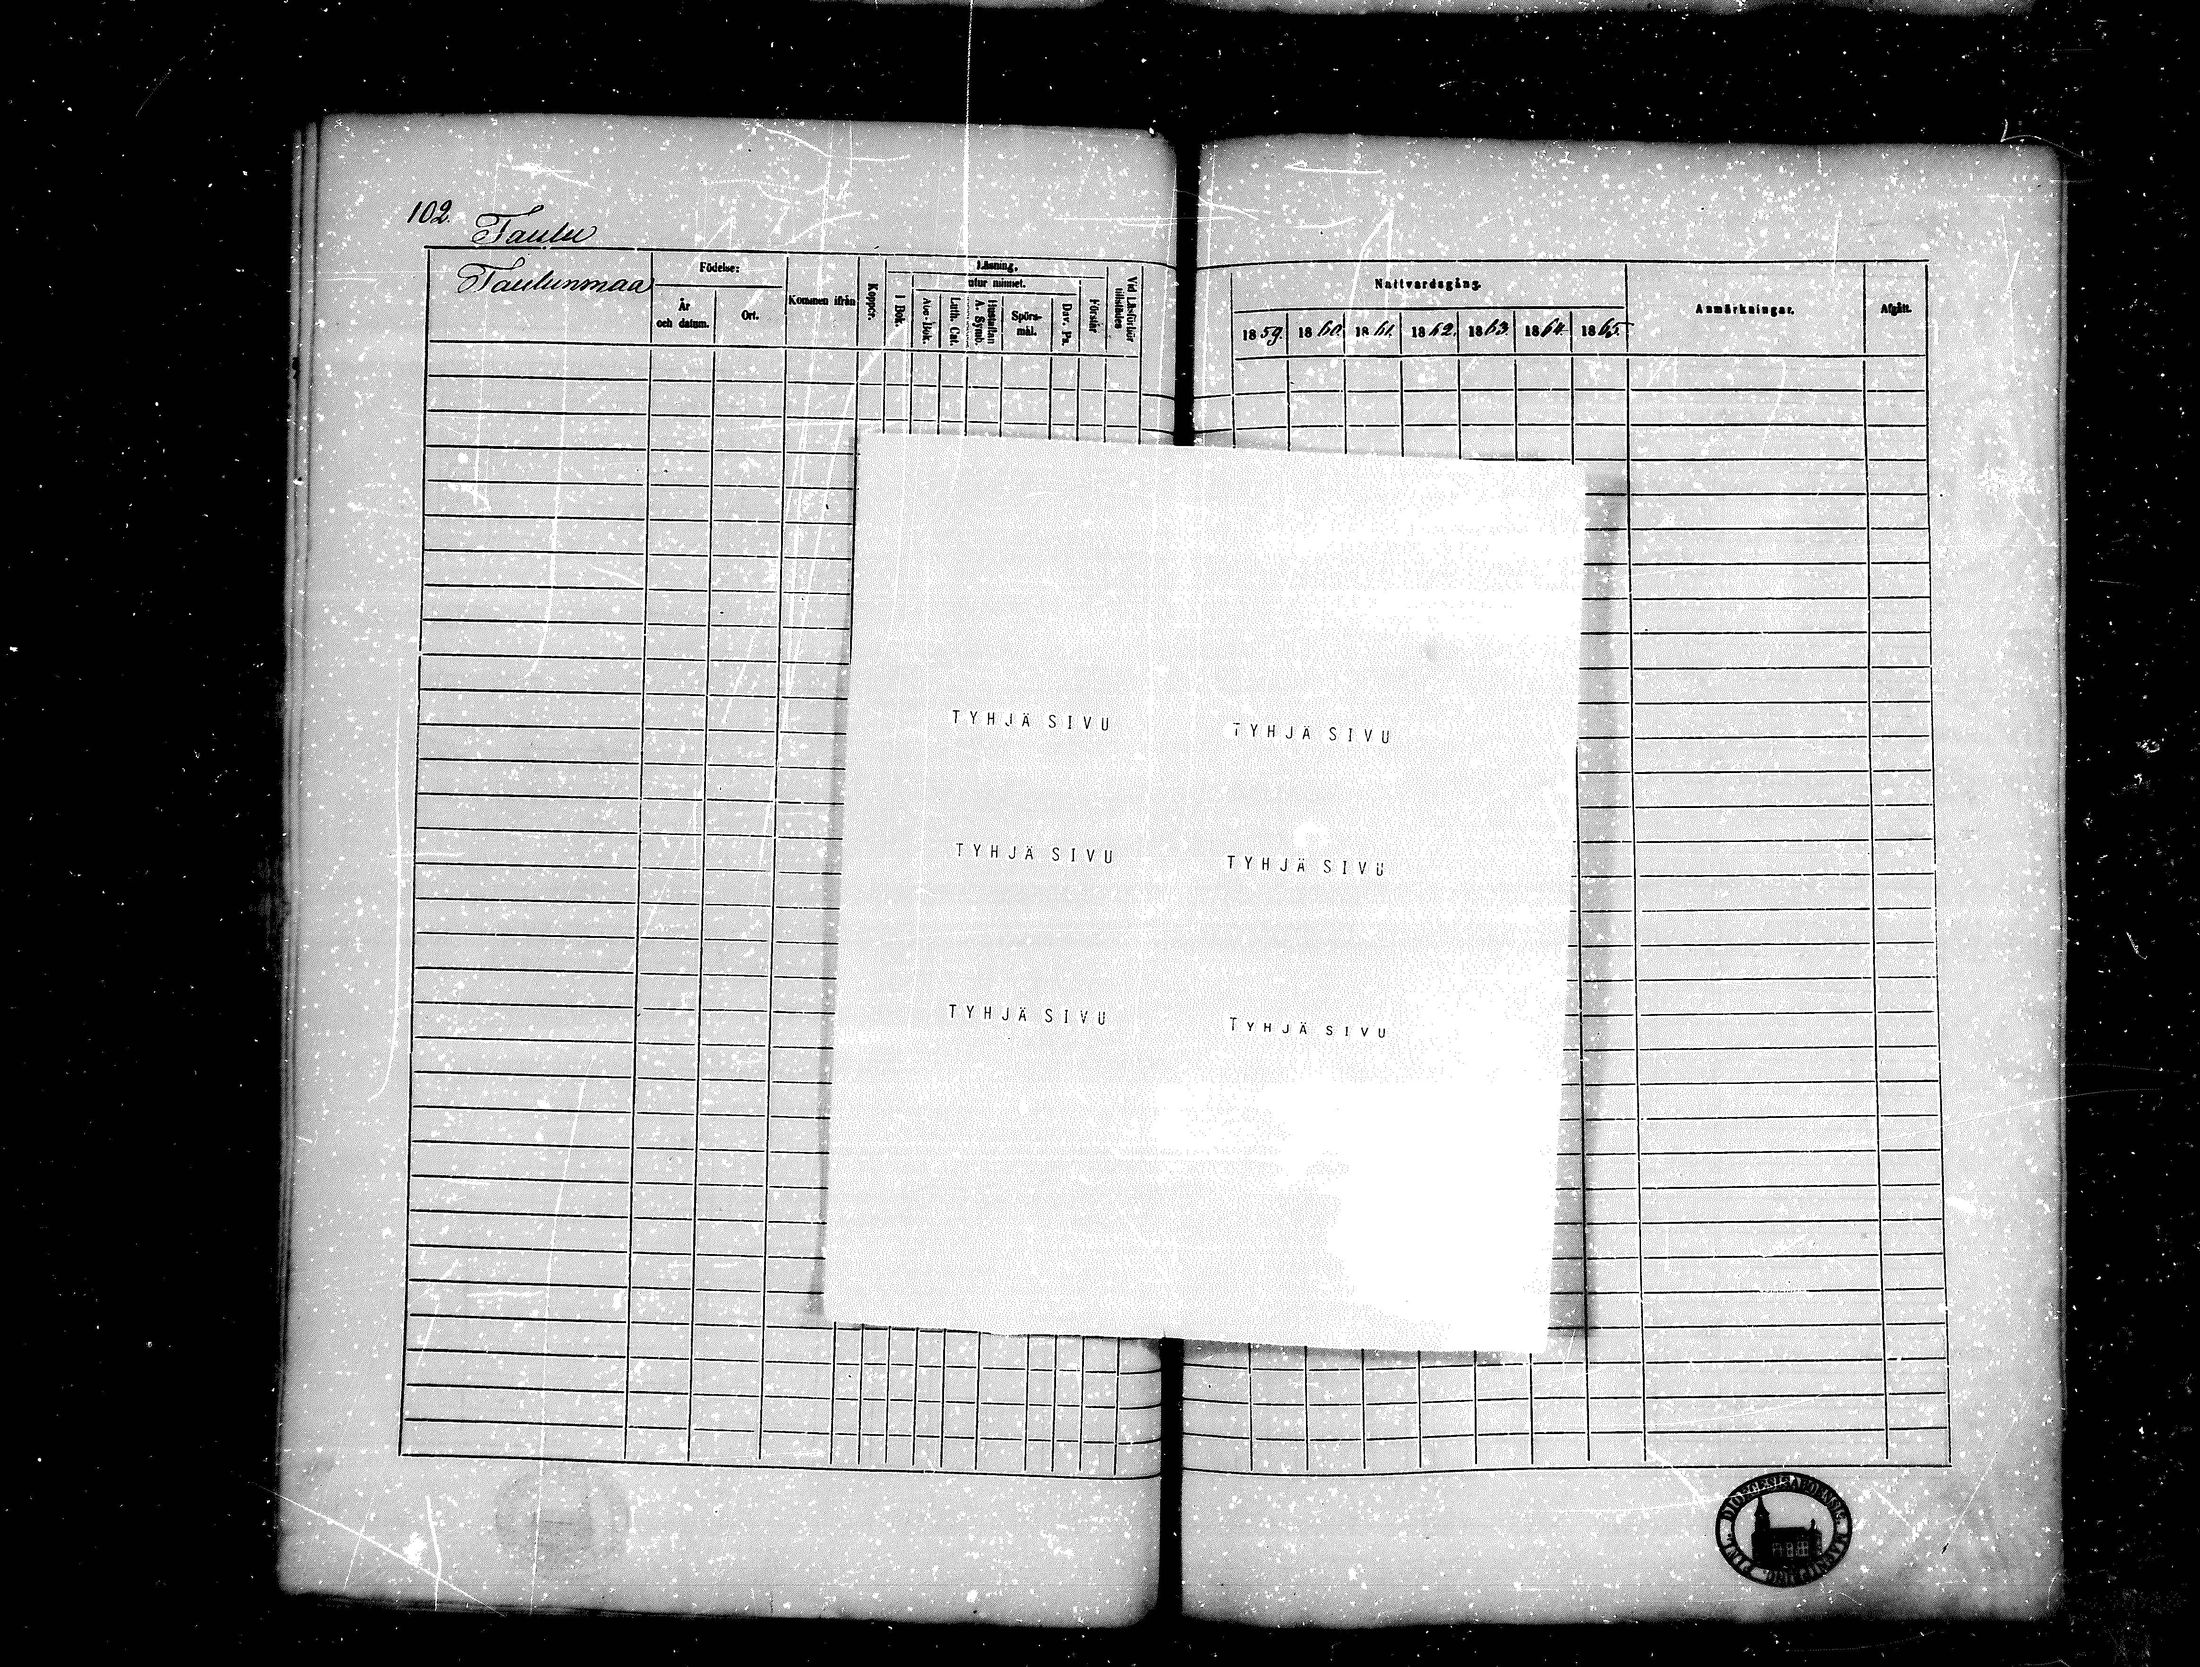 102.
Taulu
Taulunmaa
Födelse:
År
och datum.
Ort.
Kommen ifrån
Koppor.
Läsning.
I Bok.
utur minnet.
Abc-Bok.
Luth. Cat.
Hustaflan
A. Symb.
Spörs-
mål.
Dav. Ps.
Förstår
Vid Läsförhör
tillstädes
Nattvardsgång.
1859. 1860. 1861. 1862. 1863. 1864. 1865.
Anmärkningar.
Afgått.
TYHJÄ SIVU TYHJÄ SIVU
TYHJÄ SIVU TYHJÄ SIVU
TYHJÄ SIVU TYHJÄ SIVU